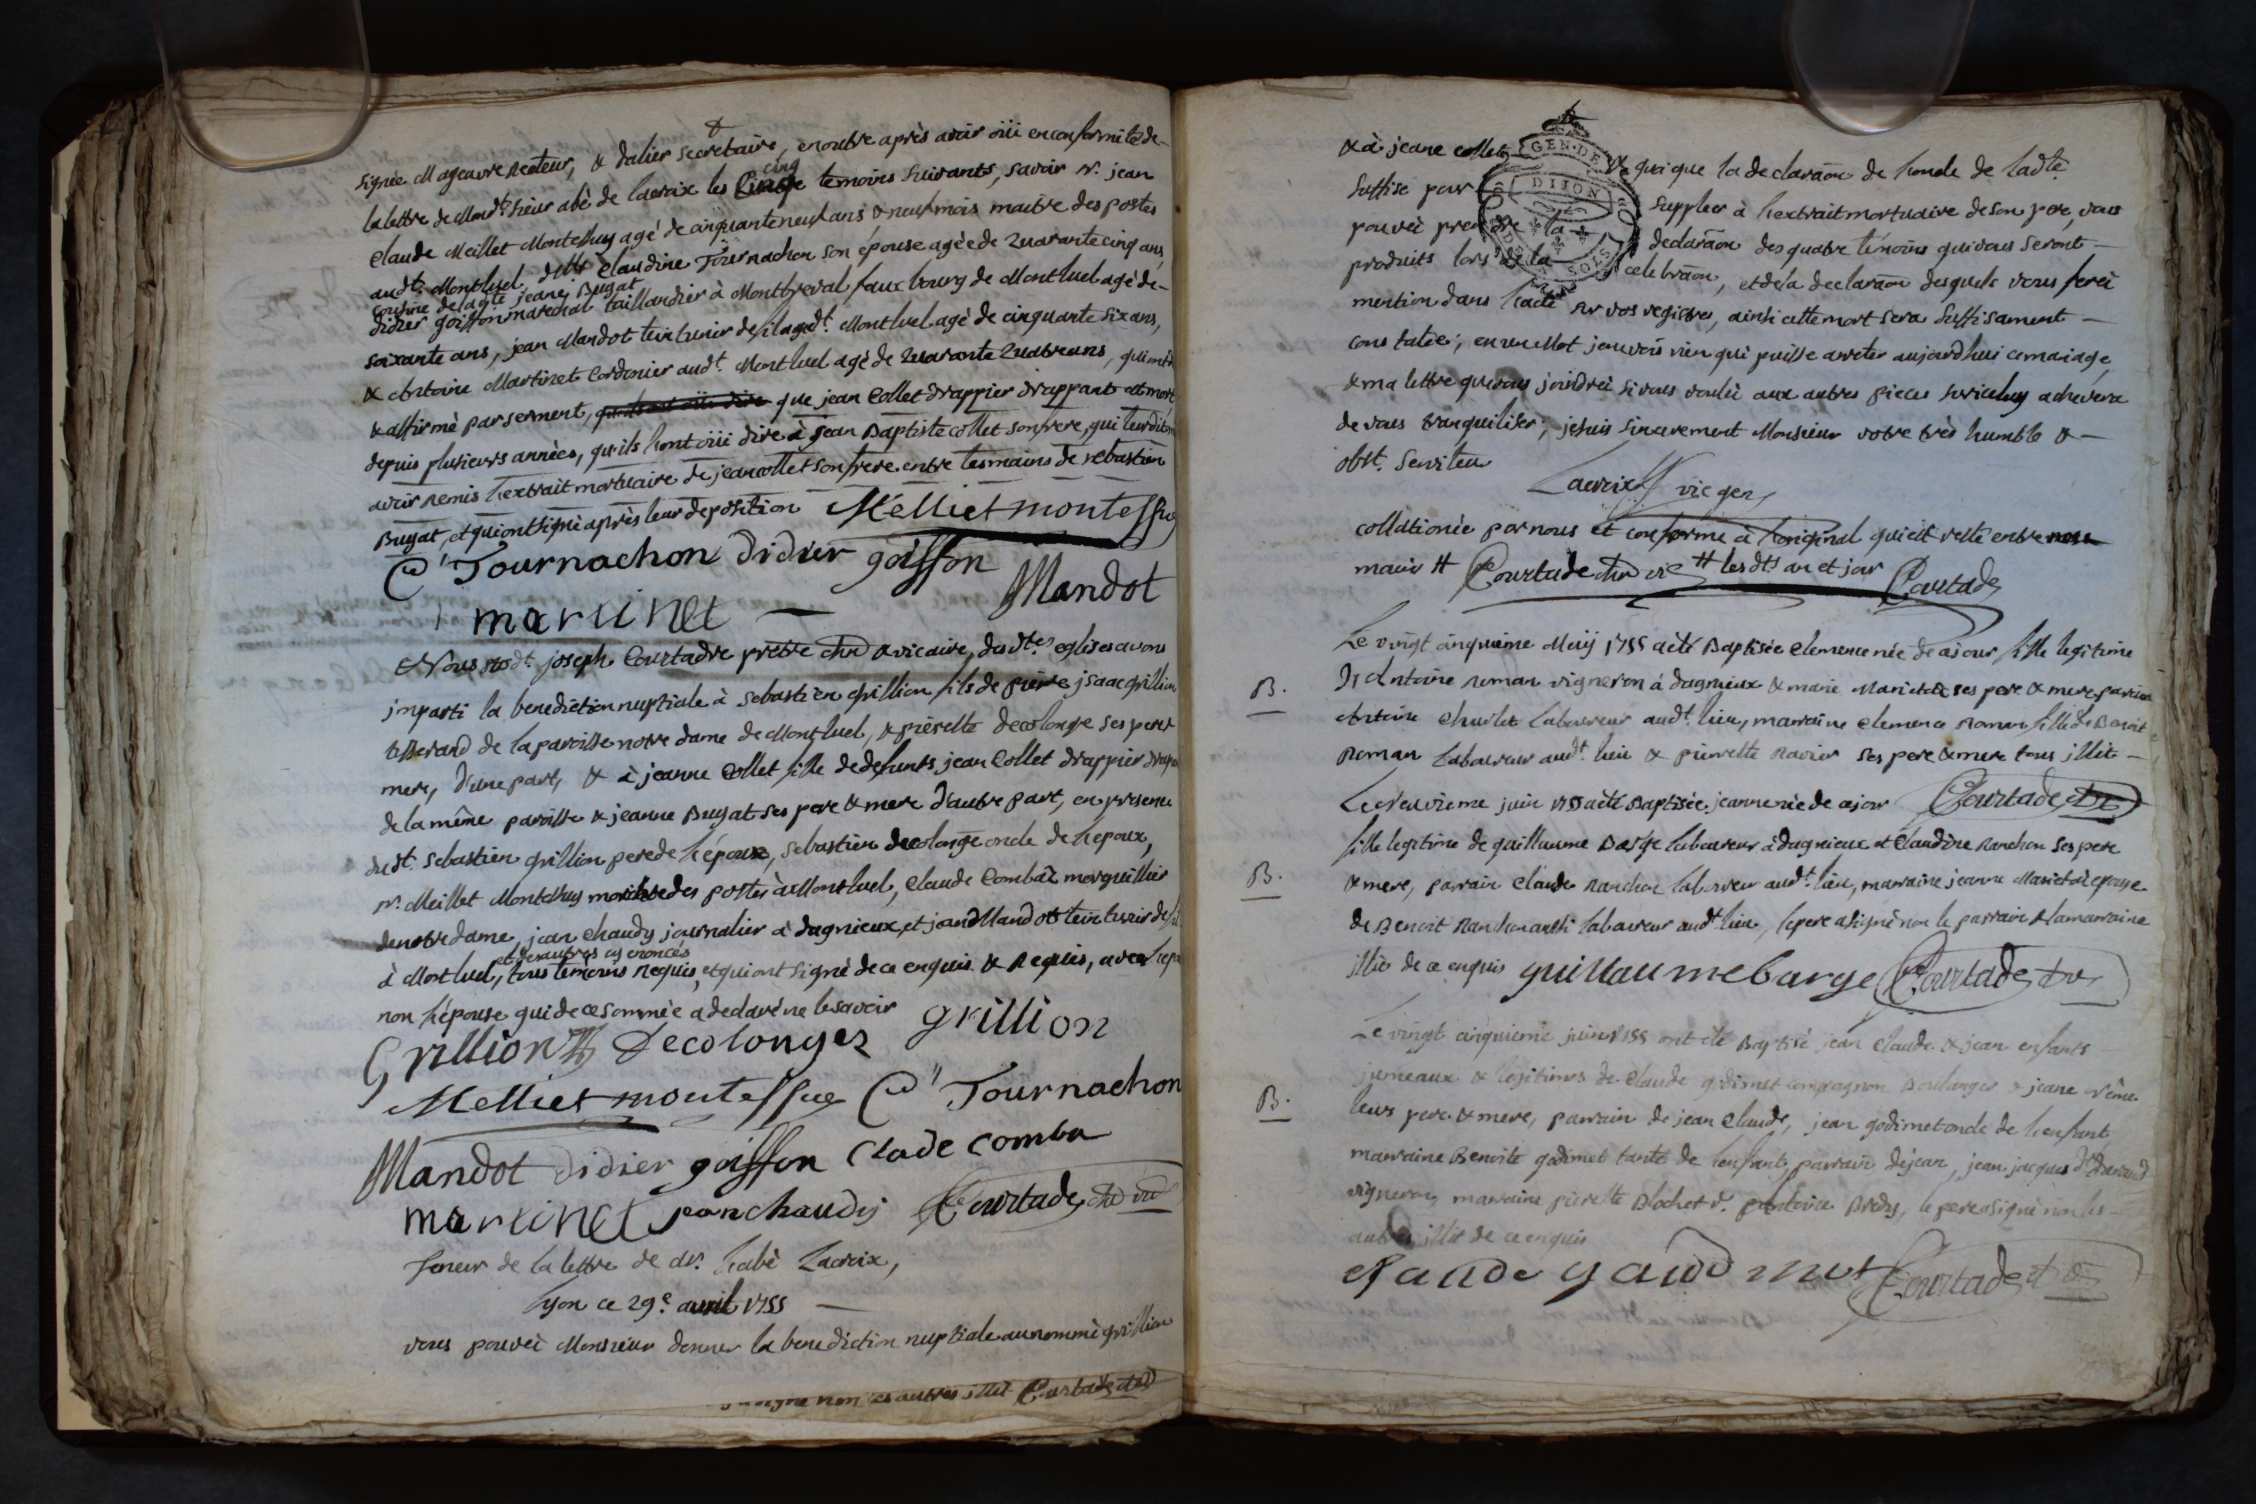 signée Mageavre recteur, & dalier secretaire, & enoutre après avoir oüi enconformité de
la lettre de Mondt. sieur abé de lacroix les cinq temoins suivants, savoir Sr. jean
claude Meillet Montessuy agé de cinquante neuf ans & neuf mois maitre des postes
audt. Montluel, dlle Claudine Tournachon son épouse agée de quarante cinq ans,
cousine de ladte jeane Bugat
didier goiffon marechal taillandier à Montbreval faux bourg de Montluel agé de
soixante ans, jean Mandot teinturier de fil audt. Montluel agé de cinquante six ans,
& Antoine Martinet Cordonier audt. Montluel agé de quarante quatre ans, qui ont
& affirmé par serment, que jean Collet drappier drappant est mort
depuis plusieurs années, qu'ils l'ont oüi dire à jean Baptiste collet son frere, qui leur dit
avoir remis l'extrait mortuaire de jean collet son frere entre les mains de sebastien
Bugat, et qui ont signé après leur deposition Melliet montessuy
Cne Tournachon didier goiffon
martinet Mandot
& Nous sodt. joseph Courtadre prêtre & vicaire, desdtes eglises avons
imparti la benediction nuptiale à sebastien Grillion fils de pierre jsaac grillion
tisserand de la paroisse notre dame de Montluel, & pierrette decolonge ses pere &
mere, d'une part, & à jeanne Collet fille de defunts jean Collet drappier drapant
de la même paroisse & jeanne Bugat ses pere & mere d'autre part, en presence
dudt. sebastien grillion pere de l'époux, sebastien decolonge oncle de l'epoux,
Sr. Meillet Montessuy maitre des postes à Montluel, Claude Combaz marguillier
de notre dame, jean chaudy journalier à dagnieux, et jean Mandot teinturier de fil
à Montluel, et des autres cy enoncés tous temoins requis, et qui ont signé de ce enquis & Requis, avec l'epoux
non l'épouse qui de ce sommée a declaré ne le savoir
Grillion Decolonges grillion
Melliet montessuy Cne Tournachon
Mandot didier goiffon Clade comba
martinet jean chaudy Courtade
Teneur de la lettre de Mr. l'abé Lacroix,
Lyon ce 29e. avril 1755
vous pouvéz Monsieur donner la benediction nuptiale au nommé grillion
signé non les autres illit Courtade
& à jeane collet & quoique la declaraon de l'oncle de ladte
suffise pour suppleer à l'extrait mortuaire de son pere, vous
pouvéz prendre la declaraon des quatre témoins qui vous seront
produits lors de la celebraon, et de la declaraon desquels vous feréz
GEN. DE DIJON
SOLS
mention dans l'acte sur vos registres, ainsi cette mort sera suffisament
constatée; en un Mot je ne vois rien qui puisse arreter aujourdhui ce mariage,
& ma lettre que vous joindréz si vous vouléz aux autres pieces sur iceluy achevera
de vous tranquiliser; je suis sincerement Monsieur votre très humble &
obst. serviteur
Lacroix vic gen,
collationée par nous et conforme à l'original qui est resté entre nos
mains # Courtade # lesdts an et jour Courtade
Le vingt cinquieme May 1755 a été Baptisée Clemence née de ce jour fille legitime
d'Antoine roman vigneron à dagnieux & marie Marietde ses pere & mere, parrain
B.
Antoine Charlet Laboureur audt. lieu, marraine clemence Roman fille de Benoit
Roman Laboureur audt. lieu & pierrette Ravier ses pere & mere tous illit
Le neuvieme juin 1755 a été Baptisée jeanne née de ce jour Courtade
fille legitime de guillaume Barge laboureur à dagnieux et Claudine Ranchon ses pere
B.
& mere, parrain Claude Ranchon laboureur audt. lieu, marraine jeanne Marietde epouse
de Benoit Ranchon aussi laboureur audt lieu, le pere a signé non le parrain & la marraine
illit. de ce enquis guillaume barge Courtade
Le vingt cinquieme juin 1755 ont été Baptisé jean Claude & jean enfants
jumeaux & legitimes de Claude godimet compagnon Boulanger & jeane
B.
leurs pere & mere, parrain de jean claude, jean godimet oncle de l'enfant
marraine Benoite godimet tante de l'enfant, parrain de jean, jean jacques
vigneron, marraine pierrette Blochet le pere a signé non les
autres illit de ce enquis
claude gaudimet Courtade